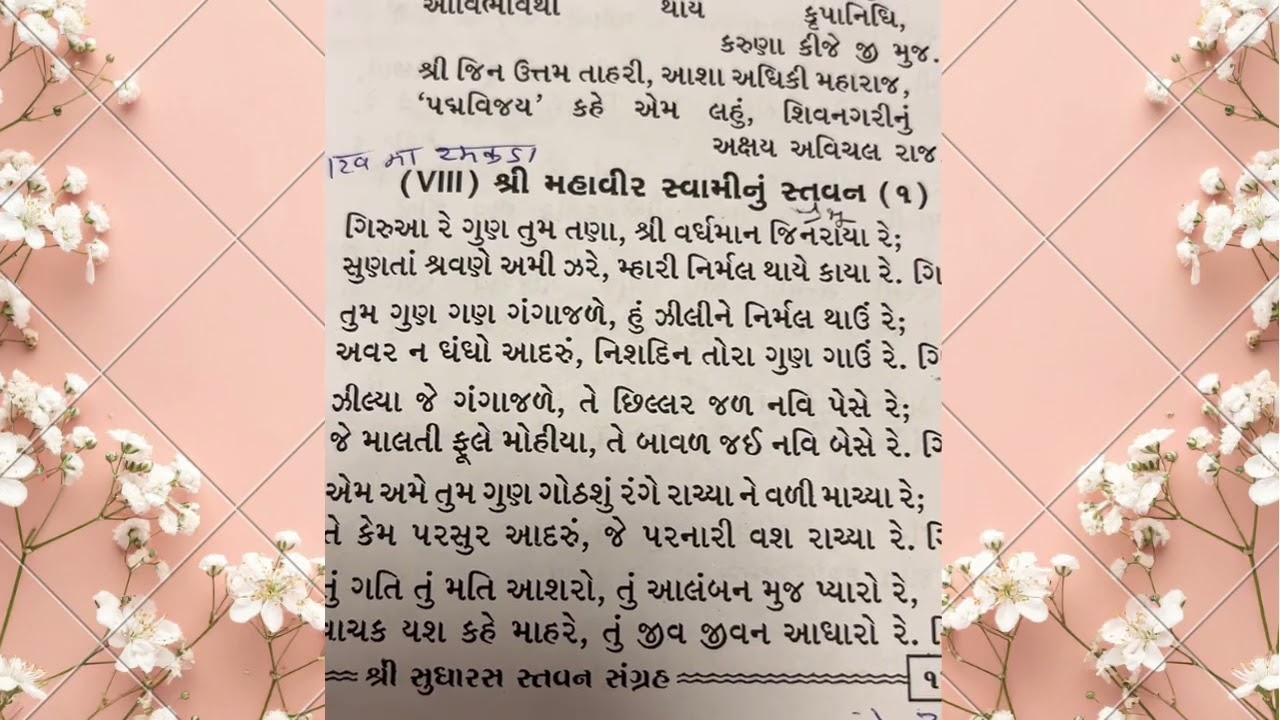 આવિર્ભાવથી થાય કૃપાનિધિ,
કરુણા કીજે જી મુજ.
શ્રી જિન ઉત્તમ તાહરી, આશા અધિકી મહારાજ,
‘પદ્મવિજય’ કહે એમ લહું, શિવનગરીનું
અક્ષય અવિચલ રાજ
મા રમકડા
(VIII) શ્રી મહાવીર સ્વામીનું સ્તવન (૧)
ગિરુઆ રે ગુણ તુમ તણા, શ્રી વર્ધમાન જિનરાયા રે;
સુણતાં શ્રવણે અમી ઝરે, મ્હારી નિર્મલ થાયે કાયા રે. ગિ
તુમ ગુણ ગણ ગંગાજળે, હું ઝીલીને નિર્મલ થાઉં રે;
અવર ન ધંધો આદરું, નિશદિન તોરા ગુણ ગાઉં રે. ગિ
ઝીલ્યા જે ગંગાજળે, તે છિલ્લર જળ નવિ પેસે રે;
જે માલતી ફૂલે મોહીયા, તે બાવળ જઈ નવિ બેસે રે. ગિ
એમ અમે તુમ ગુણ ગોઠશું રંગે રાચ્યા ને વળી માચ્યા રે;
તે કેમ પરસુર આદરું, જે પરનારી વશ રાચ્યા રે. ગિ
તું ગતિ તું મતિ આશરો, તું આલંબન મુજ પ્યારો રે,
વાચક યશ કહે માહરે, તું જીવ જીવન આધારો રે.
શ્રી સુધારસ સ્તવન સંગ્રહ
૧